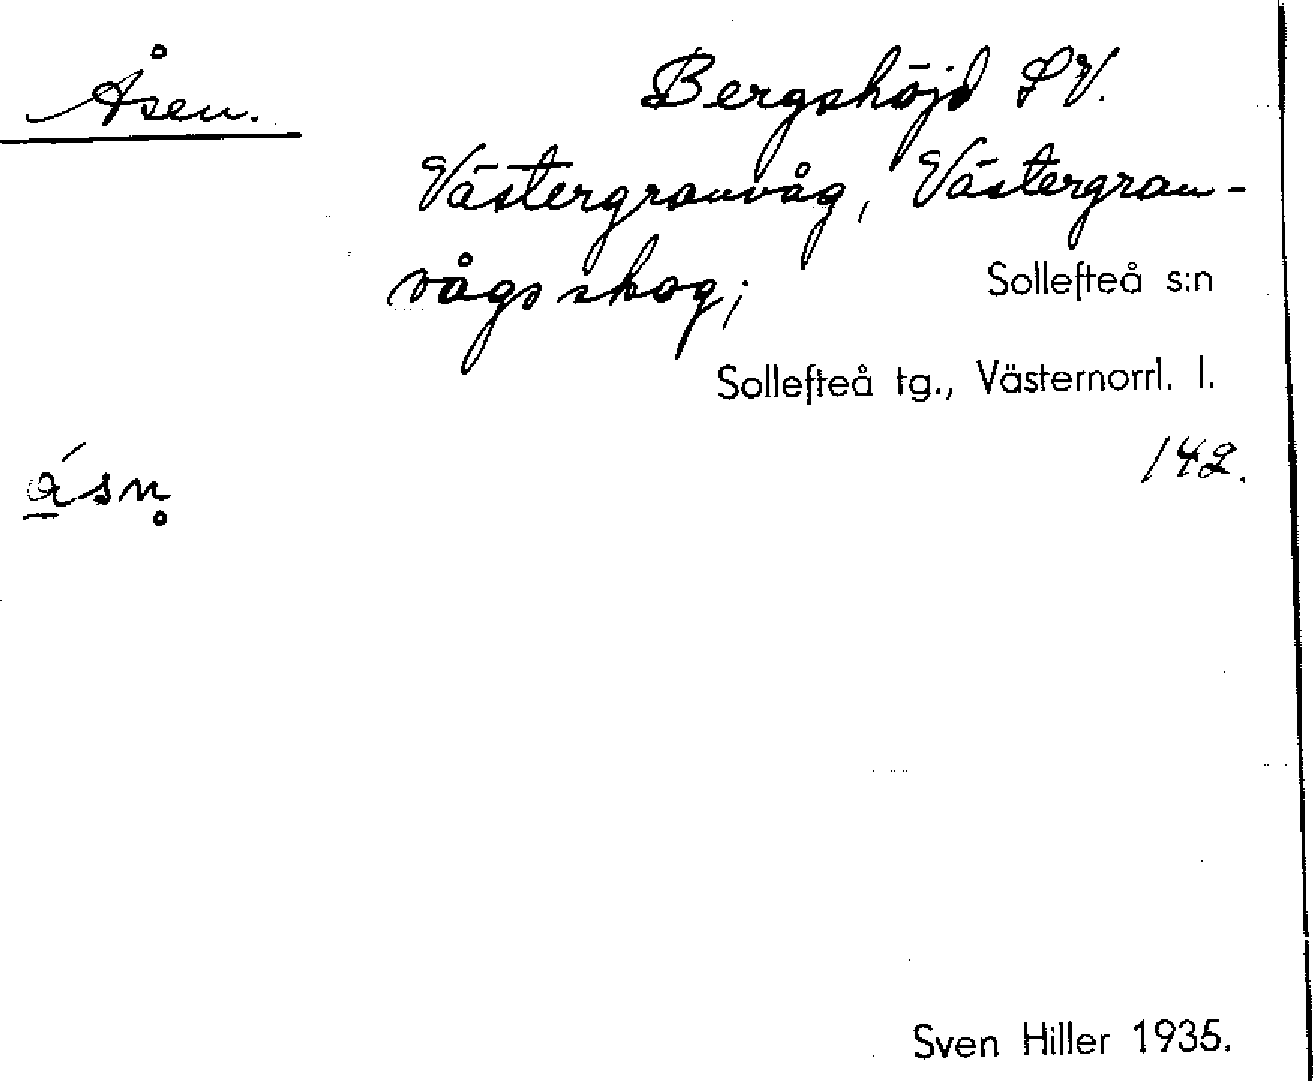 Åsen.
Bergshöjd SV.
Västergranvåg, Västergran-
vågsskog;
Sollefteå s:n
Sollefteå tg., Västernorrl. l.
142.
á̲sn̥
Sven Hiller 1935.